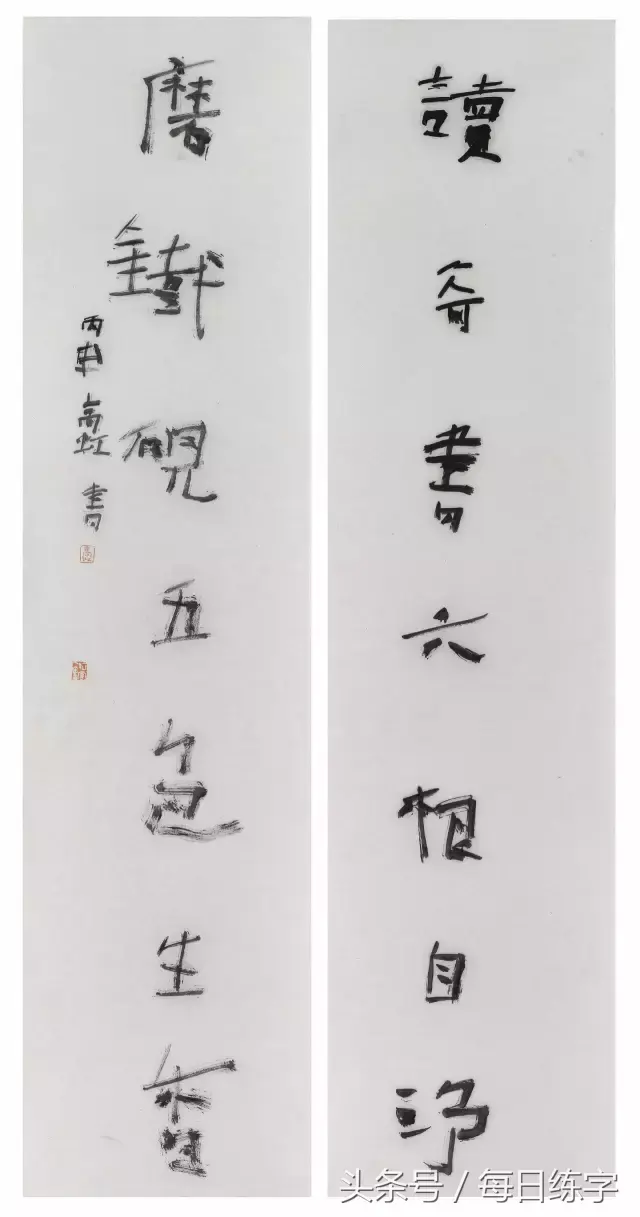 讀奇書六根自淨
磨鐵硯五色生香
丙申高虹書
头条号 / 每日练字